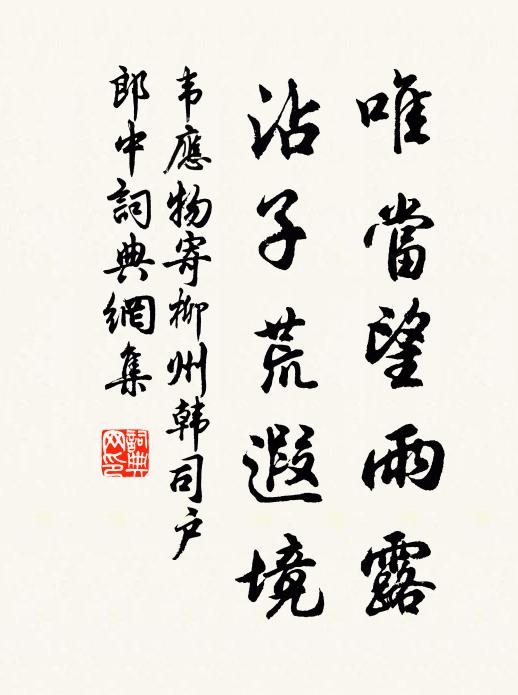 唯當望雨露
沾子荒遐境
韦應物寄柳州韩司户
郎中詞典網集
詞典
网印